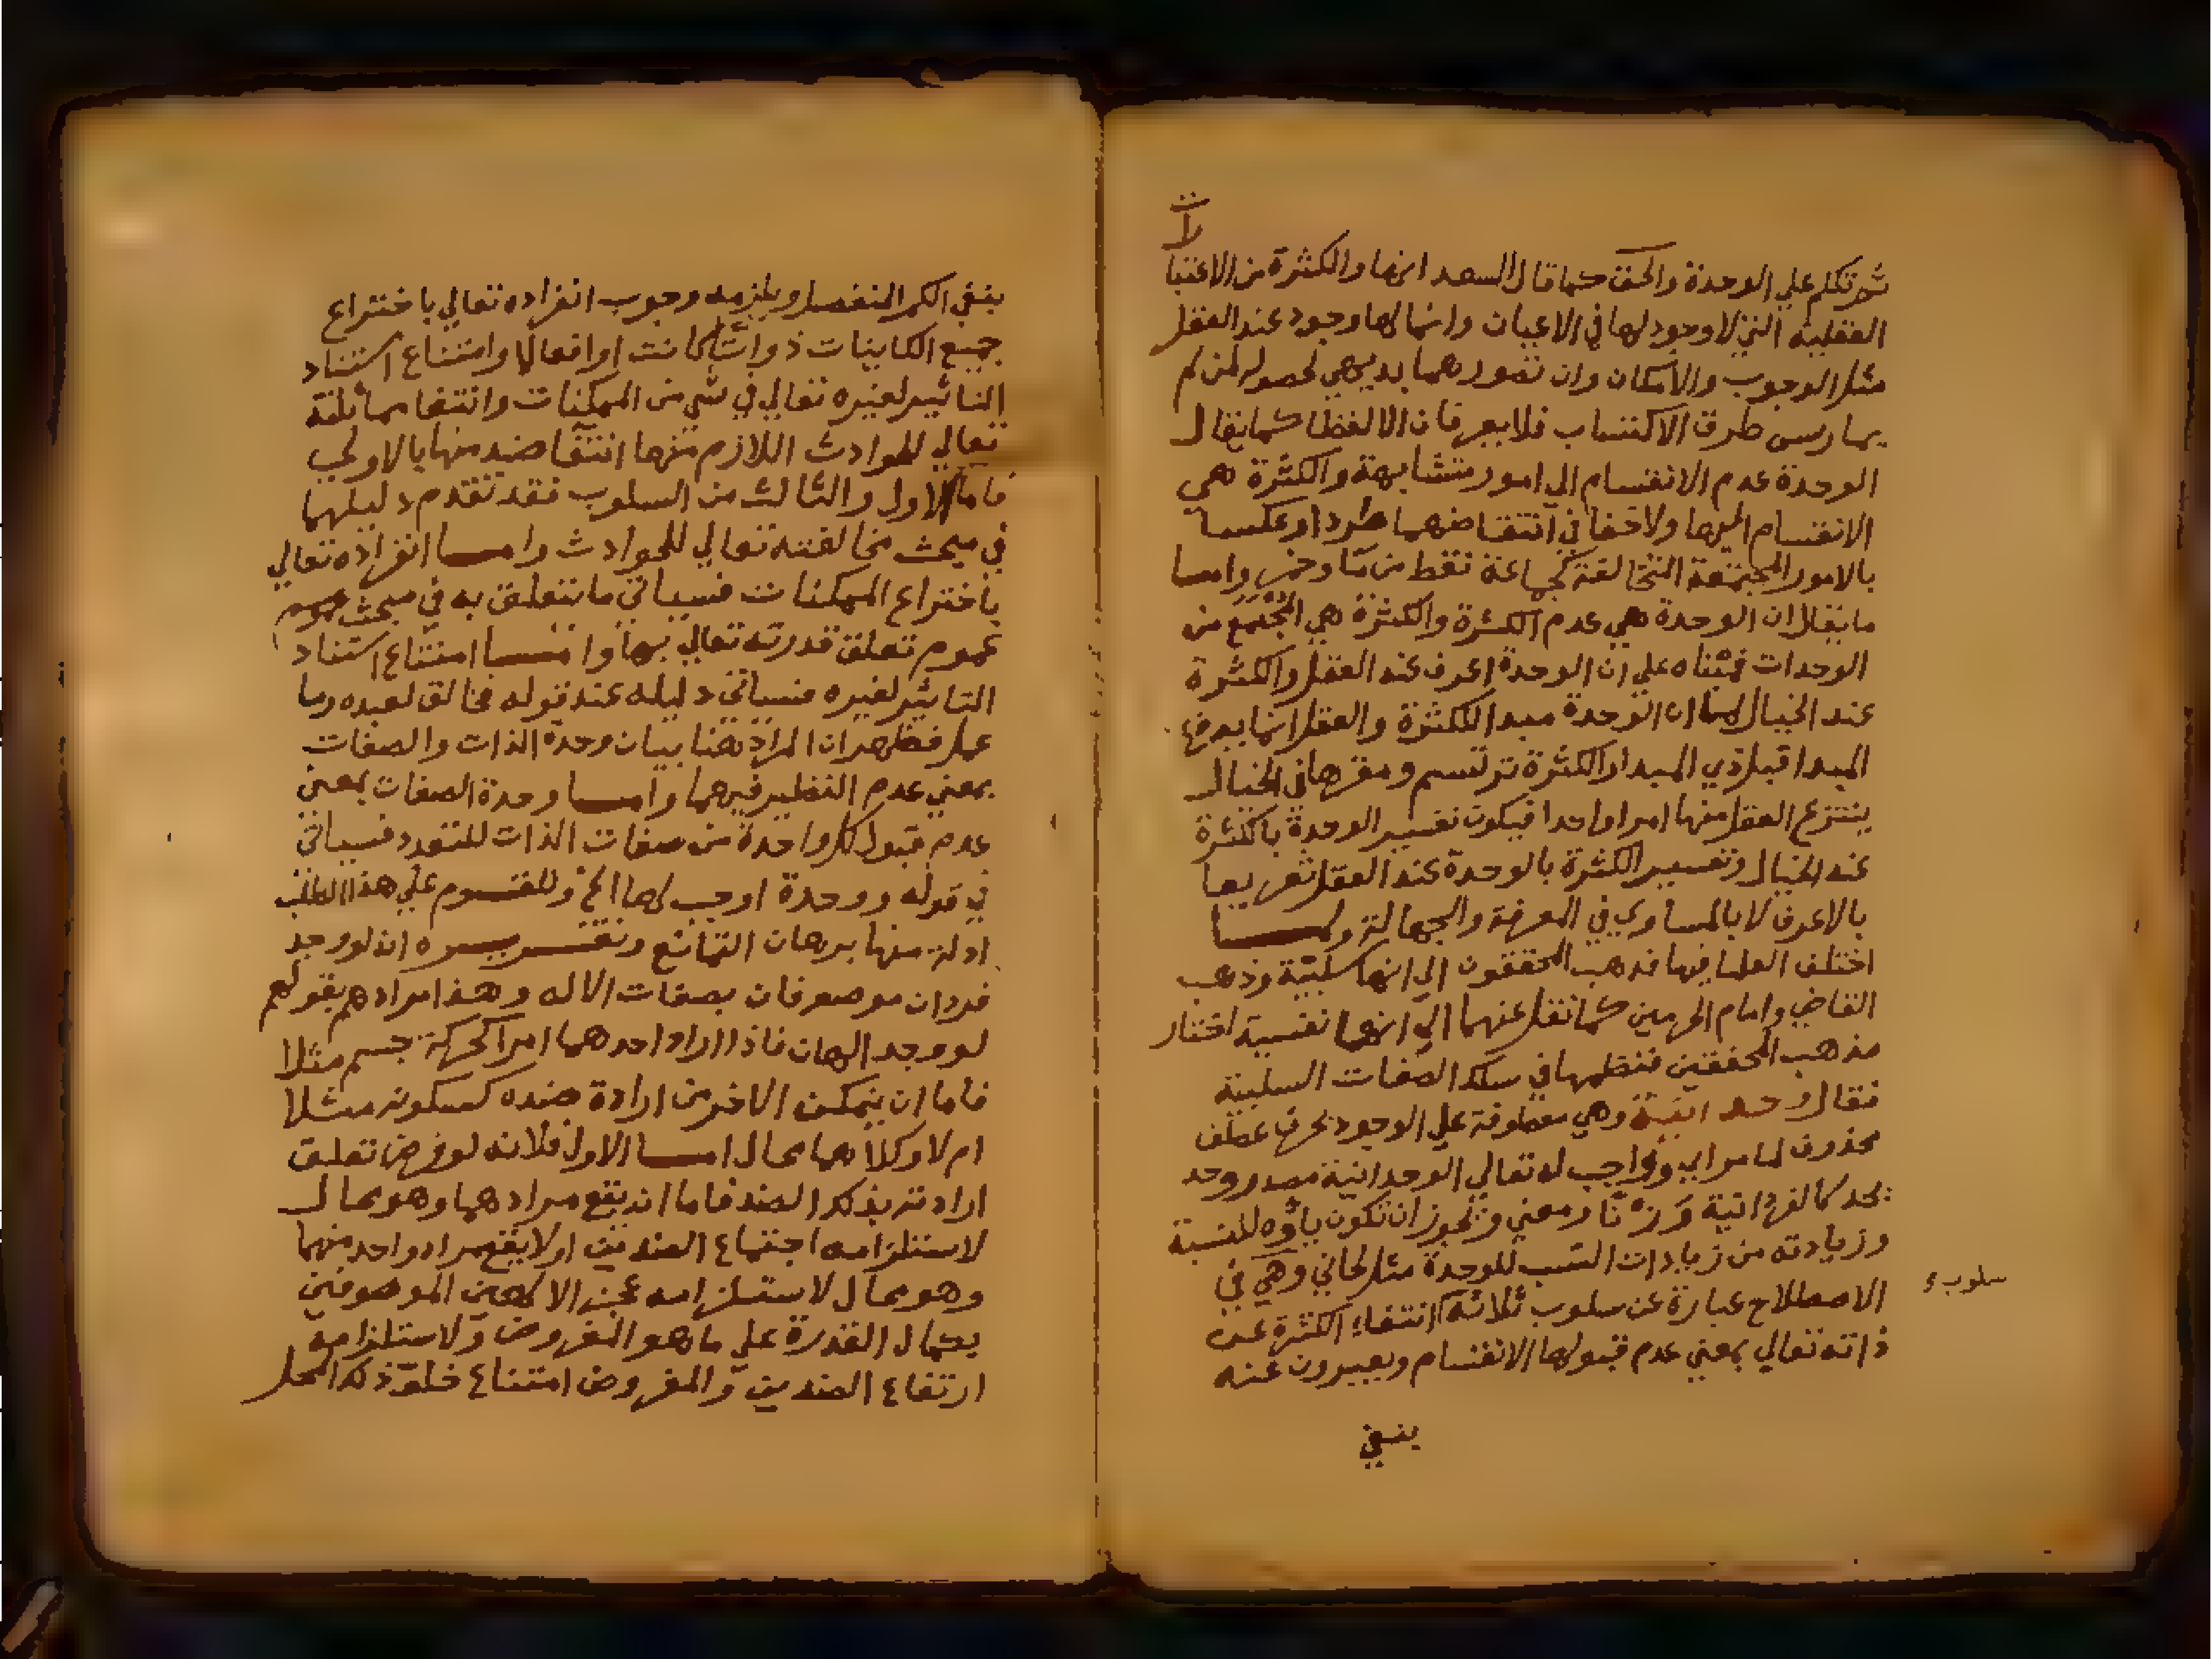 ثم تكلم علي الوحدة والحق كما قال السعد انها والكثرة من الاعتبا
رات
العقلية التي لا وجود لها في الاعيان وانما لها وجود عند العقل
مثل الوجوب والامكان وان تصورهما بديهي لحصوله لمن لم
يمارس طرق الاكتساب فلا يعرفان الا لفظا كما يقال
الوحدة عدم الانقسام الي امور متشابهة والكثرة هي
الانقسام اليها ولا خفا في انتقاضهما طردا وعكسا
بالامور المجتمعة المتخالفة كجماعة نقط من واما
ما يقال ان الوحدة هي عدم الكثرة والكثرة هي المجتمع من
الوحدات فمبناه علي ان الوحدة اعرف عند العقل والكثرة
عند الخيال لما ان الوحدة مبدا الكثرة والعقل انما يعرف
المبدا قبل ذي المبدا والكثرة ترتسم ومقرها في الخيال
ينتزع العقل منها امرا واحدا فيكون تفسير الوحدة بالكثرة
عند الخيال وتفسير الكثرة بالوحدة عند العقل تعريفا
بالاعرف لا بالمساوي في المعرفة والجهالة ولما
اختلف العلما فيها فذهب المحققون الي انها سلبية وذهب
القاضي وامام الحرمين كما نقل عنهما الي انها نفسية اختار
مذهب المحققين فنظمها في سلك الصفات السلبية
فقال وحدانية وهي معطوفة علي الوجود بحرف عطف
محذوف لما مر اي وواجب له تعالي الوحدانية مصدر وحد
يحد كالفردانية وزنا ومعني ويجوز ان تكون ياؤه للنسبة
وزيادته من زيادات النسب للوحدة مثل لحياني وهي في
الاصطلاح عبارة عن سلوب ثلاثة انتفاء الكثرة عن
سلوب
ذاته تعالي بمعني عدم قبولها الانقسام ويعبرون عنه
بنفي
بنفي الكم المنفصل ويلزمه وجوب انفراده تعالي باختراع
جميع الكاينات ذواتا كانت او افعالا وامتناع استناد
التاثير لغيره تعالي في شي من الممكنات وانتفا مماثلته
تعالي للحوادث اللازم منها انتفا ضد منها بالاولي
فاما الاول والثالث من السلوب فقد تقدم دليلهما
في مبحث مخالفته تعالي للحوادث واما انفراده تعالي
باختراع الممكنات فسياتي ما يتعلق به في مبحث عموم
عموم تعلق قدرته تعالي بها واما امتناع استناد
التاثير لغيره فسياتي دليله عند قوله فخالق لعبده وما
عمل فظهر ان المراد هنا بيان وحدة الذات والصفات
بمعني عدم النظير فيهما واما وحدة الصفات بمعني
عدم قبول كل واحدة من صفات الذات للتعدد فسياتي
في قوله ووحدة اوجب لها الخ وللقوم علي هذا المطلب
ادلة منها برهان التمانع وتقريره انه لو وجد
فردان موصوفان بصفات الاله وهذا مرادهم بقولهم
لو وجد الهان فاذا اراد احدهما امرا كحركة جسم مثلا
فاما ان يتمكن الاخر من ارادة ضده كسكونه مثلا
ام لا وكلاهما محال اما الاول فلانه لو فرض تعلق
ارادته بذلك الضد فاما ان يقع مرادهما وهو محال
لاستلزامه اجتماع الضدين اولا يقع مراد واحد منهما
وهو محال لاستلزامه عجز الالهين الموصوفين
بكمال القدرة علي ما هو المفروض ولاستلزامه
ارتفاع الضدين والمفروض امتناع خلو ذلك المحل